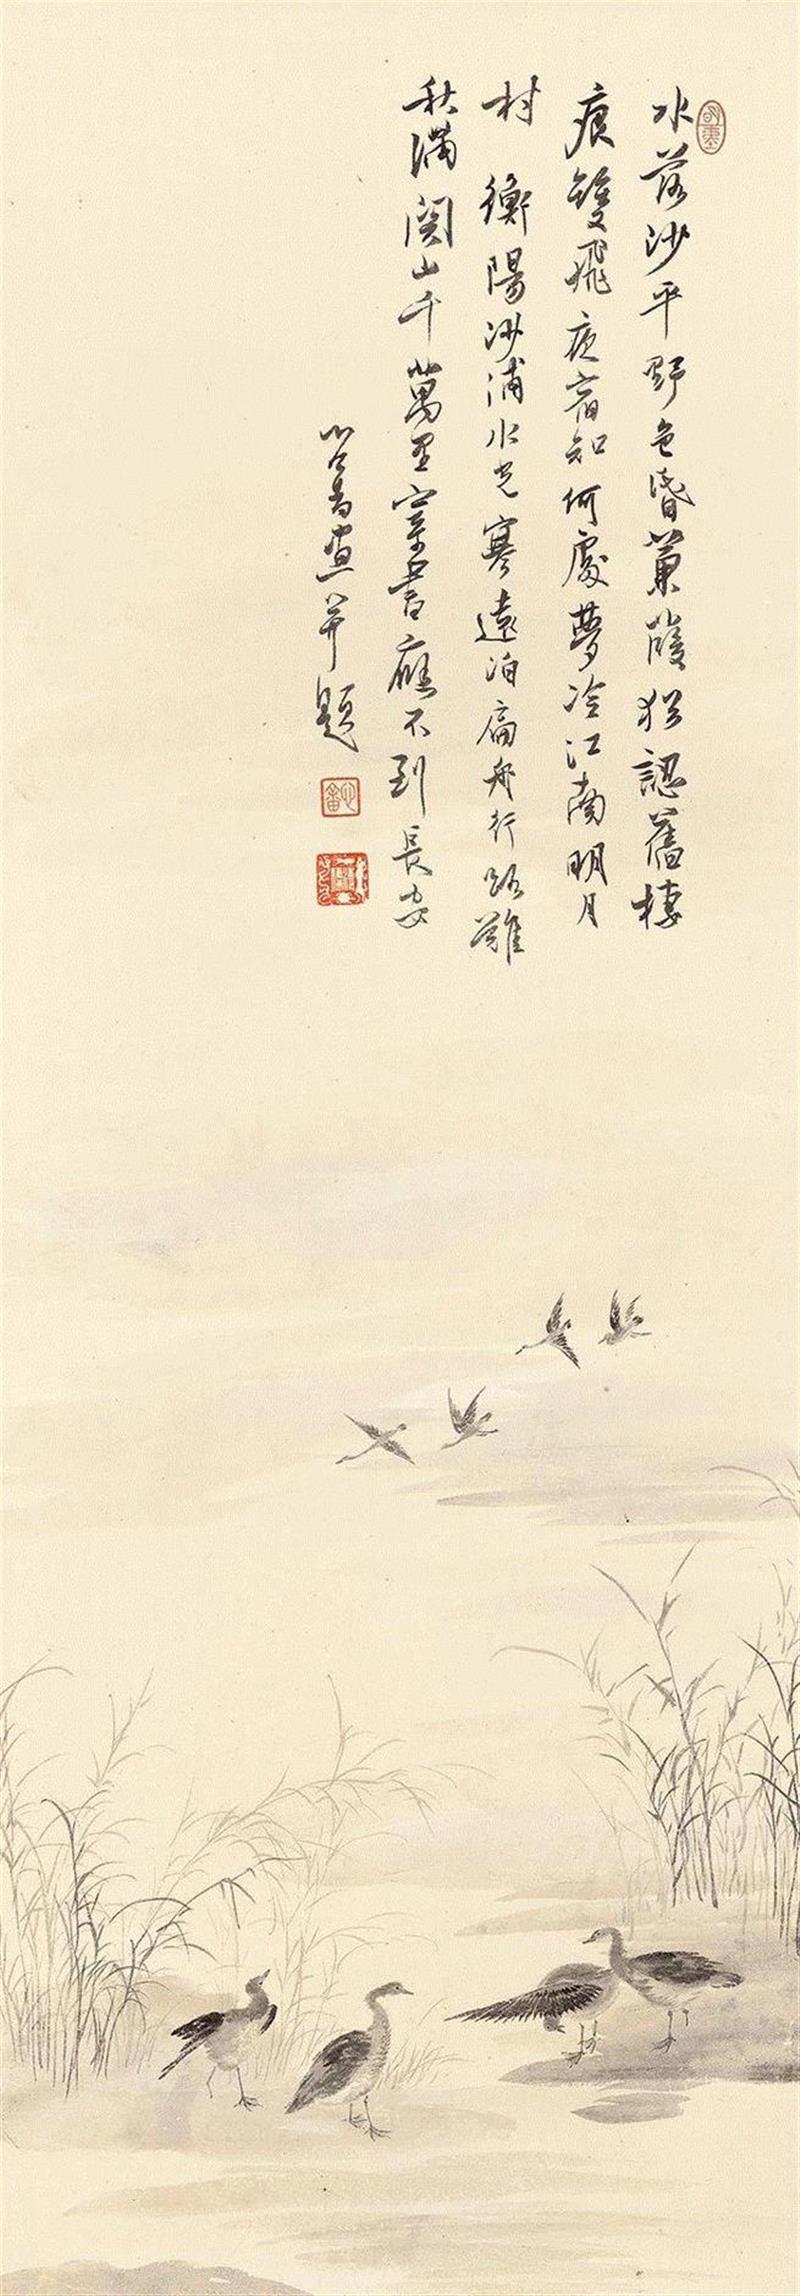 水落沙平野色昏蒹葭猶認舊棲
痕雙飛夜宿知何處夢冷江南明月
村 衡陽沙浦水光寒遠泊扁舟行路難
秋滿關山千萬里家書應不到長安
心畬畫并題
心畬